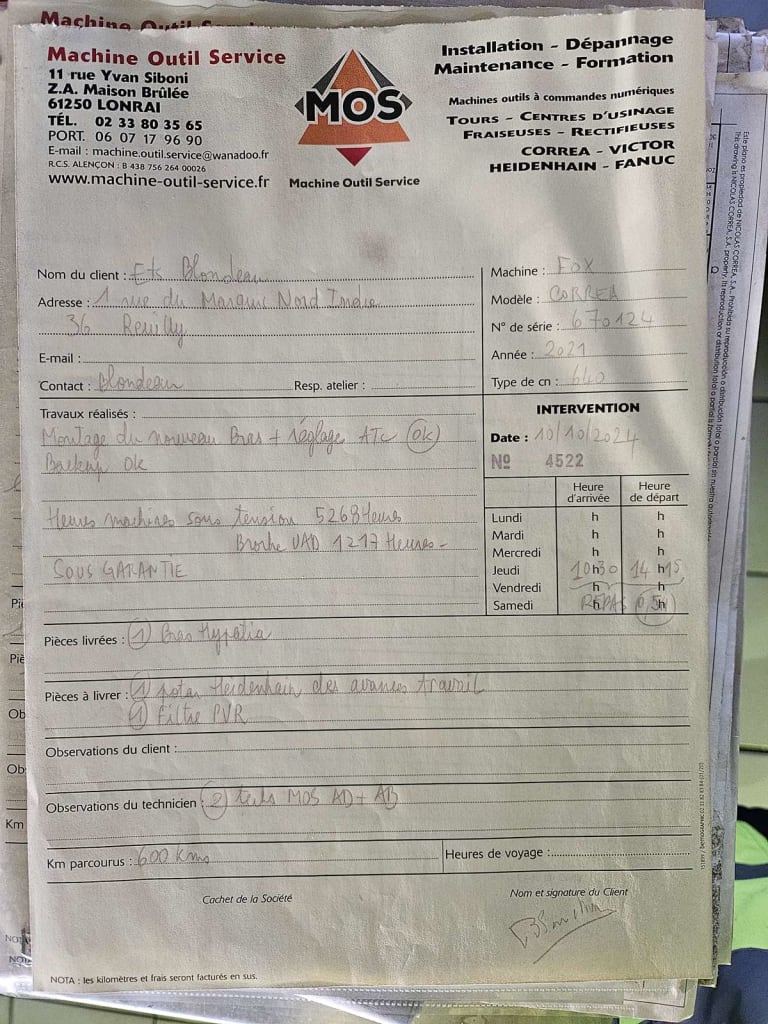 Machine Outil Service
Machine Outil Service
11 rue Yvan Siboni
Z.A. Maison Brûlée
61250 LONRAI
TÉL. 02 33 80 35 65
PORT. 06 07 17 96 90
E-mail : machine.outil.service@wanadoo.fr
R.C.S. ALENÇON : B 438 756 264 00026
www.machine-outil-service.fr
MOS
Machine Outil Service
Installation - Dépannage
Maintenance - Formation
Machines outils à commandes numériques
TOURS - CENTRES D'USINAGE
FRAISEUSES - RECTIFIEUSES
CORREA - VICTOR
HEIDENHAIN - FANUC
Nom du client : Ets Blondeau
Adresse : 1 rue du Nord Indre
36 Reuilly
E-mail :
Contact : Blondeau Resp. atelier :
Machine : FOX
Modèle : CORREA
N° de série : 670124
Année : 2021
Type de cn : 640
Travaux réalisés :
Montage du nouveau Bras + réglage ATC (OK)
Backup Ok
Heures machines sous tension 5268 Heures
Broche UAD 1217 Heures -
SOUS GARANTIE
INTERVENTION
Date : 10/10/2024
N° 4522
Heure d'arrivée Heure de départ
Lundi h h
Mardi h h
Mercredi h h
Jeudi 10 h 30 14 h 15
Vendredi h h
Samedi REPAS 0,5h
Pièces livrées : (1) Bras Hypatia
Pièces à livrer : (1) potar Heidenhain des avances travail
(1) Filtre PVR
Observations du client :
Observations du technicien : (2) techs MOS AD + AB
Km parcourus : 600 Kms Heures de voyage :
Cachet de la Société
Nom et signature du Client
NOTA : les kilomètres et frais seront facturés en sus.
Este plano es propiedad de NICOLAS CORREA, S.A. - Prohibida su reproducción o distribución total o parcial sin nuestra
This drawing is NICOLAS CORREA, S.A. property. Its reproduction or distribution total or parcial
Piè
Piè
Ob
Ob
Km
NOTA